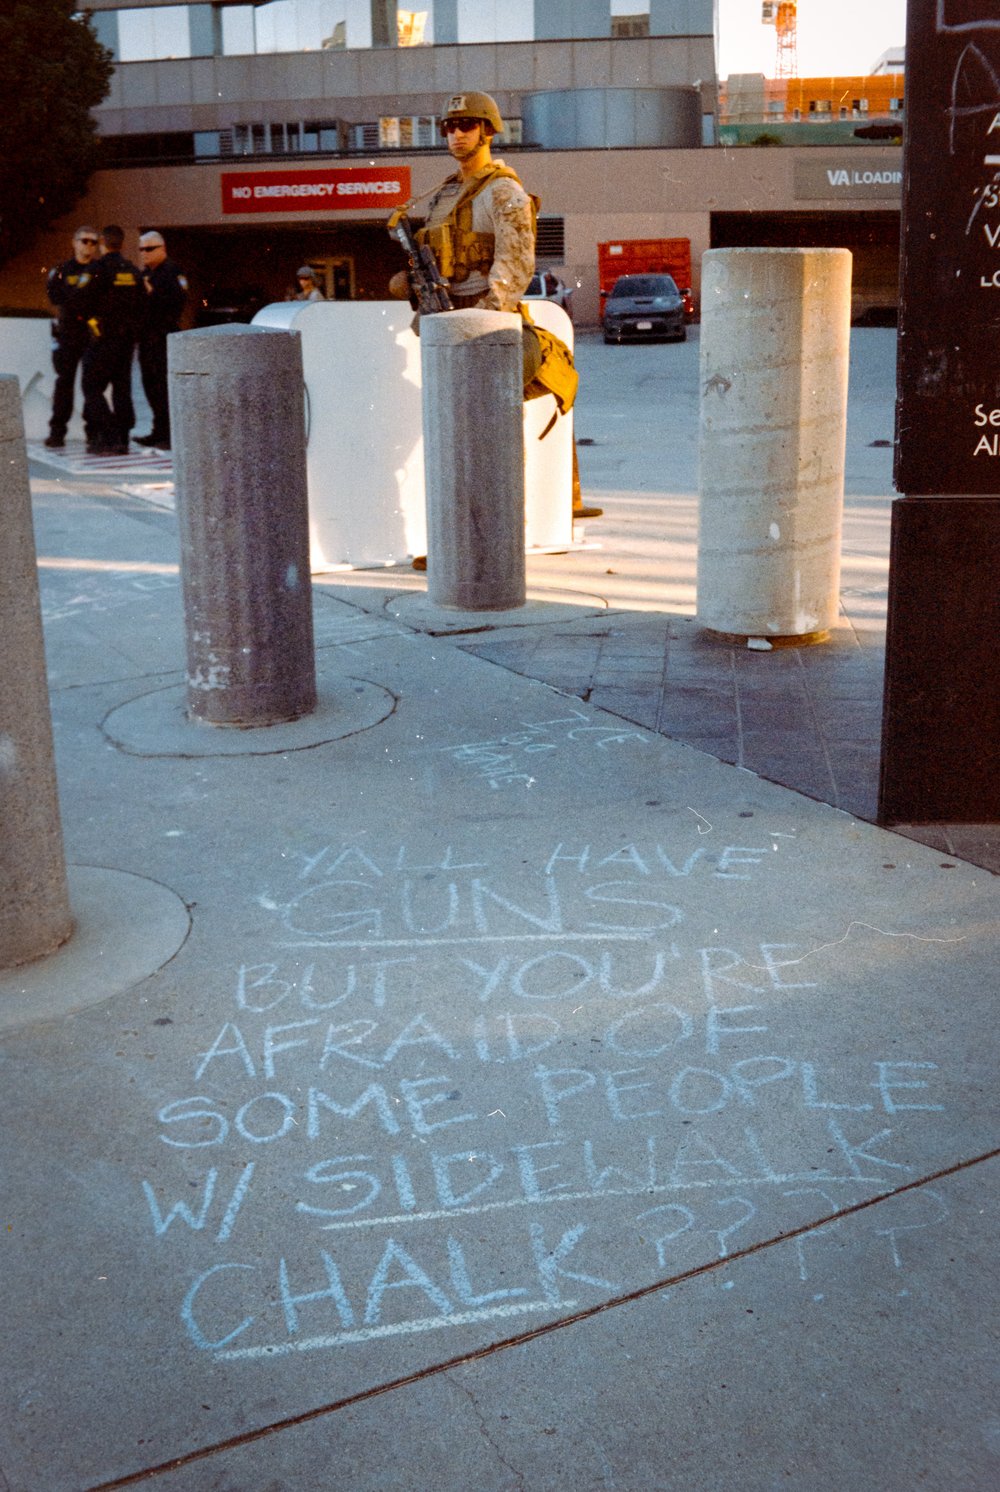 NO EMERGENCY SERVICES
VA LOADIN
A
V
LO
Se
All
ICE
GO
HOME
YALL HAVE
GUNS
BUT YOU'RE
AFRAID OF
SOME PEOPLE
W/ SIDEWALK
CHALK????